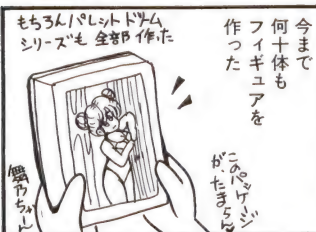 今まで
何十体も
フィギュアを
作った
もちろんパレットドリーム
シリーズも全部作った
このパッケージ
が、たまらん
舞乃ちゃーん